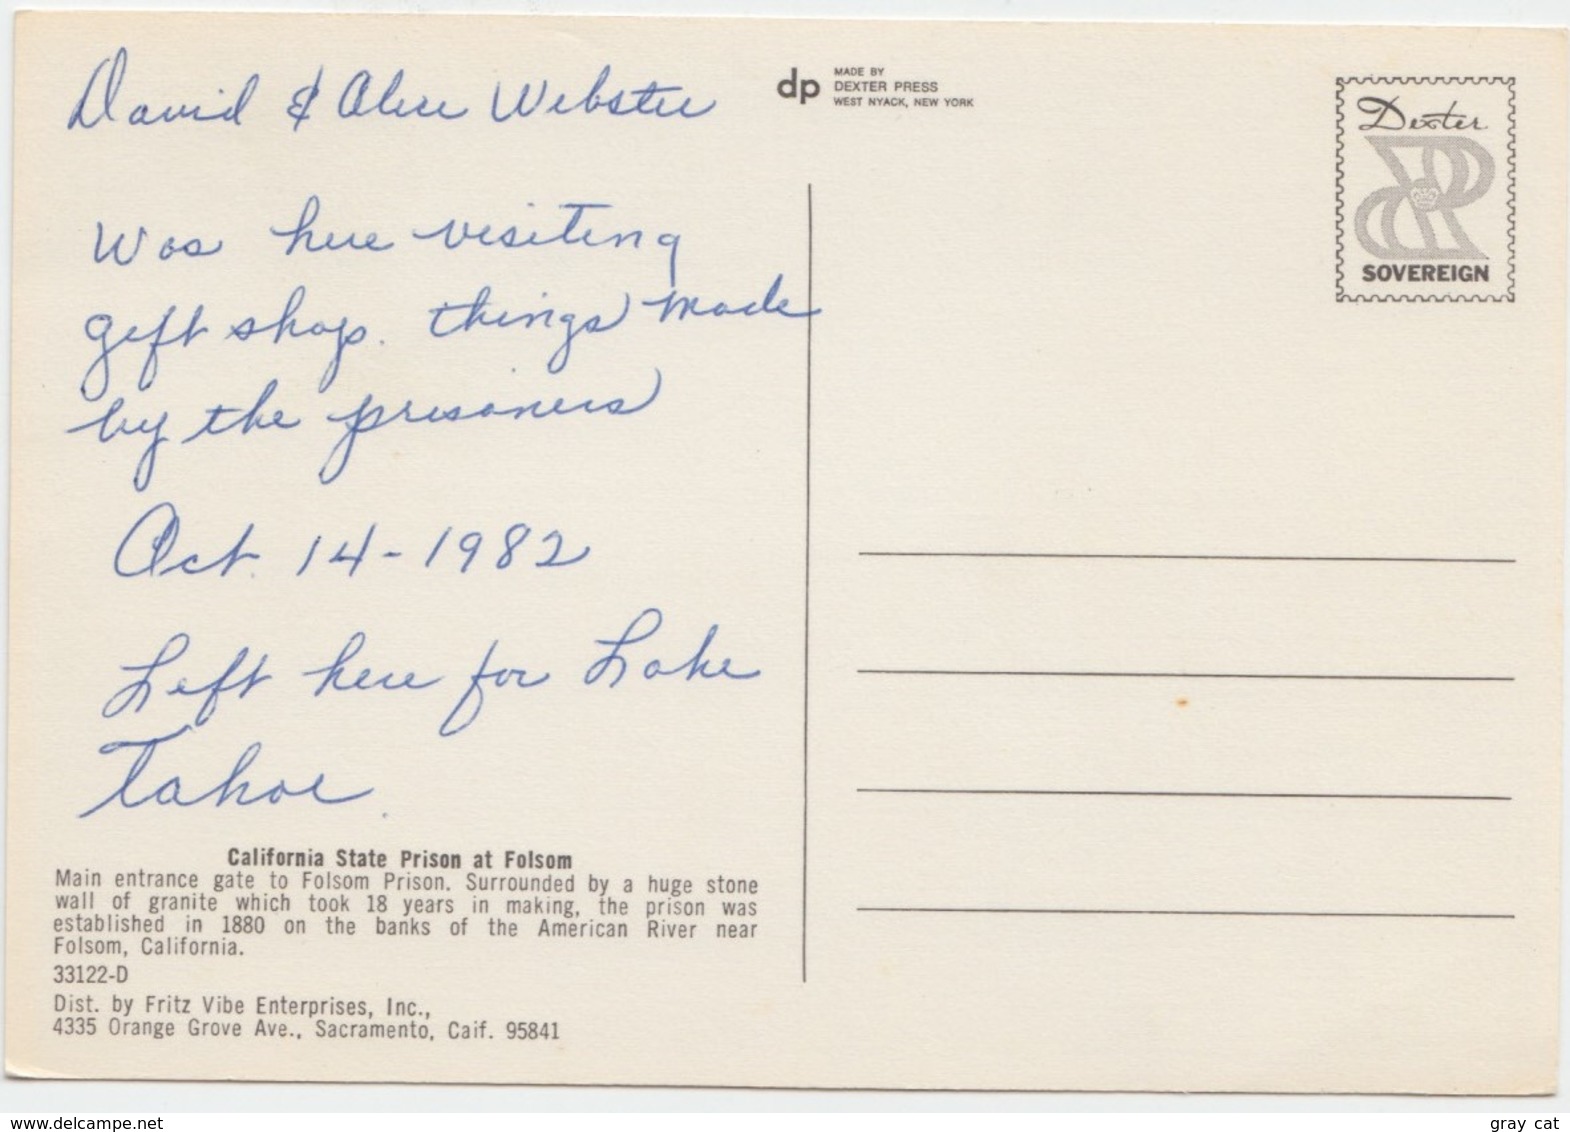 David & Alice Webster
Was here visiting
gift shop. things made
by the prisoners
Oct. 14-1982
Left here for Lake
Tahoe.
California State Prison at Folsom
Main entrance gate to Folsom Prison. Surrounded by a huge stone
wall of granite which took 18 years in making, the prison was
established in 1880 on the banks of the American River near
Folsom, California.
33122-D
Dist. by Fritz Vibe Enterprises, Inc.,
4335 Orange Grove Ave., Sacramento, Caif. 95841
dp
MADE BY
DEXTER PRESS
WEST NYACK, NEW YORK
Dexter
SOVEREIGN
www.delcampe.net
gray cat